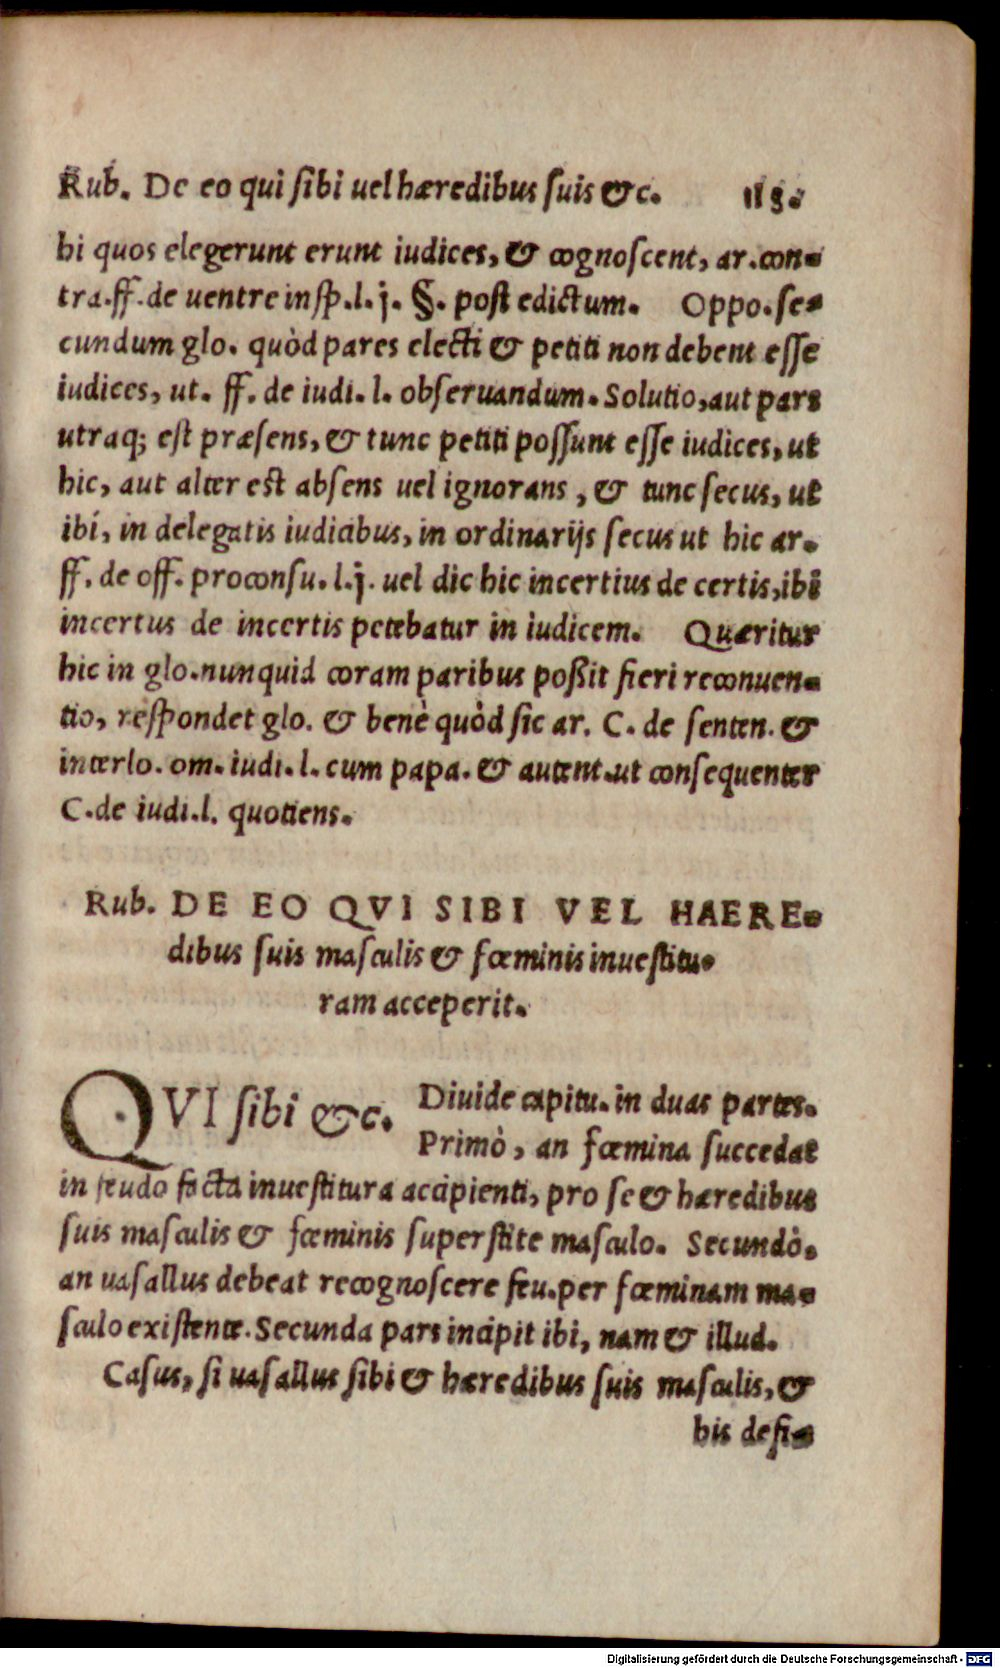 Rub. De eo qui sibi uel hæredibus suis &c. 118.
hi quos elegerunt erunt iudices, & cognoscent, ar.con-
tra.ff.de uentre insp.l.j. §. post edictum. Oppo.se-
cundum glo. quòd pares electi & petiti non debent esse
iudices, ut. ff. de iudi. l. obseruandum. Solutio,aut pars
utraq; est præsens, & tunc petiti possunt esse iudices, ut
hic, aut alter est absens uel ignorans , & tunc secus, ut
ibi, in delegatis iudicibus, in ordinarijs secus ut hic ar.
ff. de off. proconsu. l.j. uel dic hic incertius de certis,ibi
incertus de incertis petebatur in iudicem. Quæritur
hic in glo.nunquid coram paribus poßit fieri reconuen-
tio, respondet glo. & benè quòd sic ar. C. de senten. &
interlo. om. iudi. l. cum papa. & autent.ut consequenter
C.de iudi.l. quotiens.
Rub. DE EO QVI SIBI VEL HAERE-
dibus suis masculis & fœminis inuestitu-
ram acceperit.
QVI sibi &c. Diuide capitu. in duas partes.
Primò, an fœmina succedat
in feudo facta inuestitura accipienti, pro se & hæredibus
suis masculis & fœminis superstite masculo. Secundò,
an uasallus debeat recognoscere feu.per fœminam ma-
sculo existente. Secunda pars incipit ibi, nam & illud.
Casus, si uasallus sibi & hæredibus suis masculis, &
his defi-
Digitalisierung gefördert durch die Deutsche Forschungsgemeinschaft - DFG